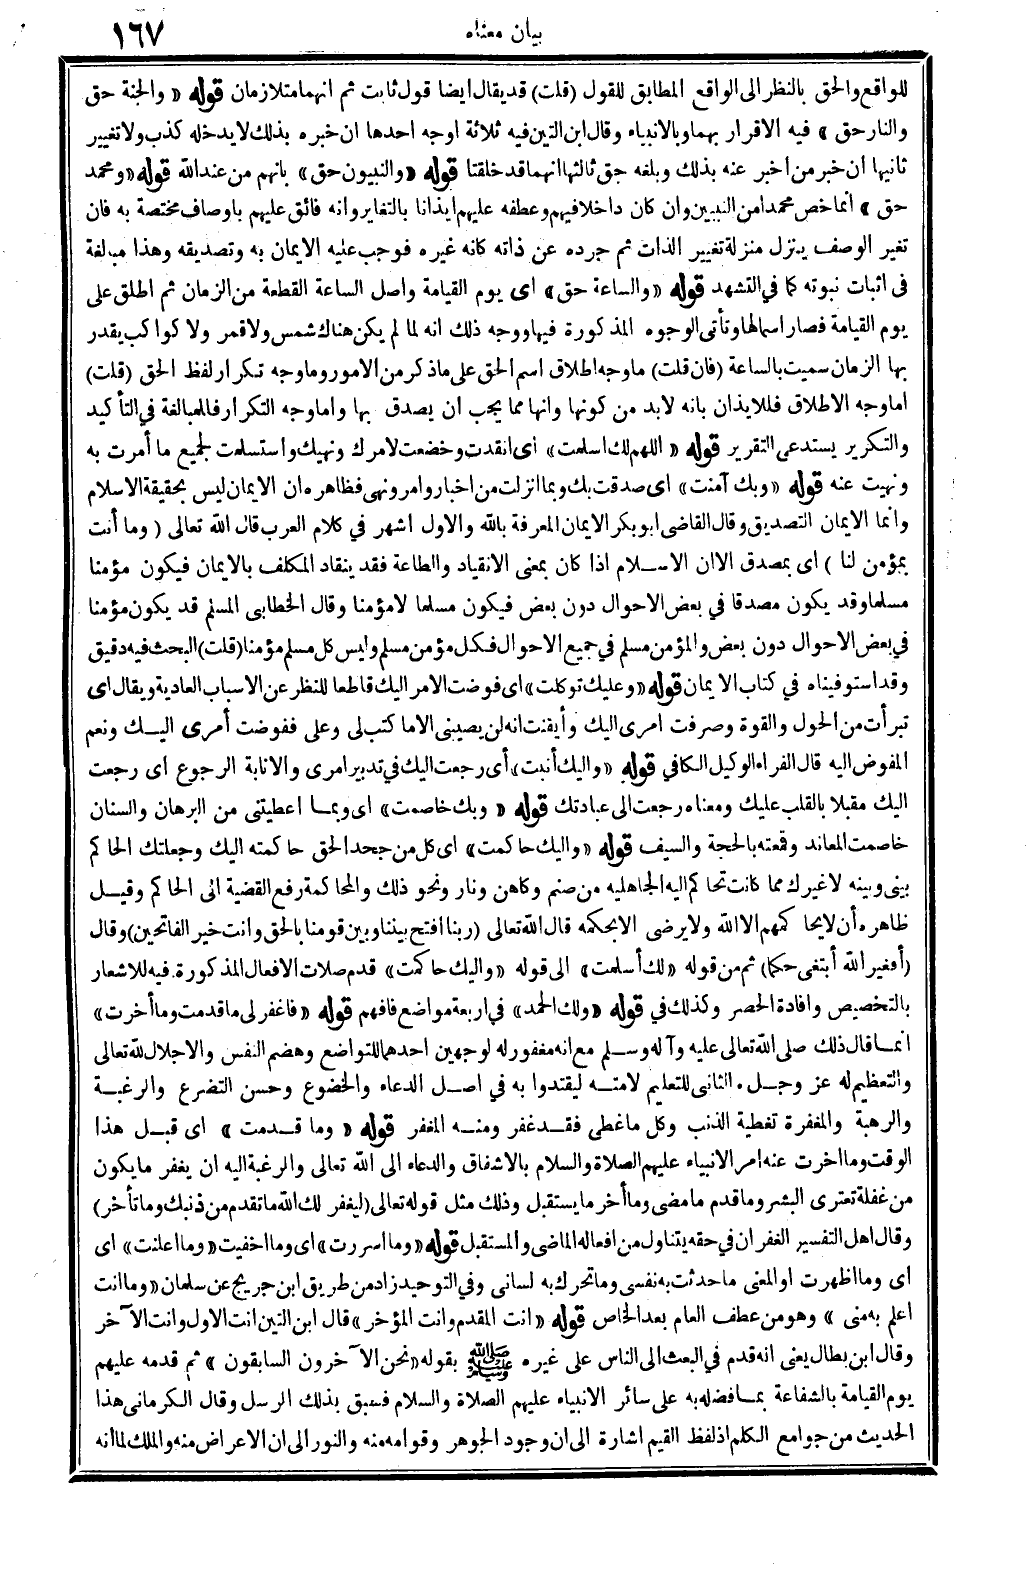 بيان معناه
١٦٧
للواقع والحق بالنظر الى الواقع المطابق للقول (قلت) قد يقال ايضا قول ثابت ثم انهما متلازمان قوله «والجنة حق
والنار حق» فيه الاقرار بهما وبالانبياء وقال ابن التين فيه ثلاثة اوجه احدها ان خبره بذلك لا يدخله كذب ولا تغيير
ثانيها ان خبر من اخبر عنه بذلك وبلغه حق ثالثها انهما قد خلقتا قوله «والنبيون حق» بانهم من عند الله قوله «ومحمد
حق» انما خص محمدا من النبيين وان كان داخلا فيهم وعطفه عليهم ايذانا بالتغاير وانه فائق عليهم باوصاف مختصة به فان
تغير الوصف ينزل منزلة تغيير الذات ثم جرده عن ذاته كانه غيره فوجب عليه الايمان به وتصديقه وهذا مبالغة
فى اثبات نبوته كما في التشهد قوله «والساعة حق» اى يوم القيامة واصل الساعة القطعة من الزمان ثم اطلق على
يوم القيامة فصار اسما لها وتأتى الوجوه المذكورة فيها ووجه ذلك انه لما لم يكن هناك شمس ولا قمر ولا كواكب يقدر
بها الزمان سميت بالساعة (فان قلت) ما وجه اطلاق اسم الحق على ما ذكر من الامور وما وجه تكرار لفظ الحق (قلت)
اما وجه الاطلاق فللايذان بانه لابد من كونها وانها مما يجب ان يصدق بها واما وجه التكرار فللمبالغة في التأكيد
والتكرير يستدعى التقرير قوله «اللهم لك اسلمت» اى انقدت وخضعت لامرك ونهيك واستسلمت لجميع ما أمرت به
ونهيت عنه قوله «وبك آمنت» اى صدقت بك وبما انزلت من اخبار وامر ونهى فظاهره ان الايمان ليس بحقيقة الاسلام
وانما الايمان التصديق وقال القاضى ابو بكر الايمان المعرفة بالله والاول اشهر في كلام العرب قال الله تعالى (وما أنت
بمؤمن لنا) اى بمصدق الا ان الاسلام اذا كان بمعنى الانقياد والطاعة فقد ينقاد المكلف بالايمان فيكون مؤمنا
مسلما وقد يكون مصدقا في بعض الاحوال دون بعض فيكون مسلما لا مؤمنا وقال الخطابى المسلم قد يكون مؤمنا
في بعض الاحوال دون بعض والمؤمن مسلم في جميع الاحوال فكل مؤمن مسلم وليس كل مسلم مؤمنا (قلت) البحث فيه دقيق
وقد استوفيناه في كتاب الايمان قوله «وعليك توكلت» اى فوضت الامر اليك قاطعا للنظر عن الاسباب العادية ويقال اى
تبرأت من الحول والقوة وصرفت امرى اليك وأيقنت انه لن يصيبنى الا ما كتب لى وعلى ففوضت أمرى اليك ونعم
المفوض اليه قال الفراء الوكيل الكافي قوله «واليك أنبت» أى رجعت اليك في تدبير امرى والانابة الرجوع اى رجعت
اليك مقبلا بالقلب عليك ومعناه رجعت الى عبادتك قوله «وبك خاصمت» اى وبما اعطيتنى من البرهان والسنان
خاصمت المعاند وقمعته بالحجة والسيف قوله «واليك حاكمت» اى كل من جحد الحق حاكمته اليك وجعلتك الحاكم
بينى وبينه لا غيرك مما كانت تحاكم اليه الجاهلية من صنم وكاهن ونار ونحو ذلك والمحاكمة رفع القضية الى الحاكم وقيل
ظاهره أن لا يحاكمهم الا الله ولا يرضى الا بحكمه قال الله تعالى (ربنا افتح بيننا وبين قومنا بالحق وانت خير الفاتحين) وقال
(أفغير الله أبتغى حكما) ثم من قوله «لك أسلمت» الى قوله «واليك حاكمت» قدم صلات الافعال المذكورة فيه للاشعار
بالتخصيص وافادة الحصر وكذلك في قوله «ولك الحمد» في اربعة مواضع فافهم قوله «فاغفر لى ما قدمت وما أخرت»
انما قال ذلك صلى الله تعالى عليه وآله وسلم مع انه مغفور له لوجهين احدهما للتواضع وهضم النفس والاجلال لله تعالى
والتعظيم له عز وجل. الثانى للتعليم لامته ليقتدوا به في اصل الدعاء والخضوع وحسن التضرع والرغبة
والرهبة والمغفرة تغطية الذنب وكل ما غطى فقد غفر ومنه المغفر قوله «وما قدمت» اى قبل هذا
الوقت وما اخرت عنه امر الانبياء عليهم الصلاة والسلام بالاشفاق والدعاء الى الله تعالى والرغبة اليه ان يغفر ما يكون
من غفلة تعترى البشر وما قدم ما مضى وما أخر ما يستقبل وذلك مثل قوله تعالى (ليغفر لك الله ما تقدم من ذنبك وما تأخر)
وقال اهل التفسير الغفران في حقه يتناول من افعاله الماضى والمستقبل قوله «وما اسررت» اى وما اخفيت «وما اعلنت» اى
اى وما اظهرت او المعنى ما حدثت به نفسى وما تحرك به لسانى وفي التوحيد زاد من طريق ابن جريج عن سلمان «وما انت
اعلم به منى» وهو من عطف العام بعد الخاص قوله «انت المقدم وانت المؤخر» قال ابن التين انت الاول وانت الآخر
وقال ابن بطال يعنى انه قدم في البعث الى الناس على غيره ﷺ بقوله «نحن الآخرون السابقون» ثم قدمه عليهم
يوم القيامة بالشفاعة بما فضله به على سائر الانبياء عليهم الصلاة والسلام فسبق بذلك الرسل وقال الكرمانى هذا
الحديث من جوامع الكلم اذ لفظ القيم اشارة الى ان وجود الجوهر وقوامه منه والنور الى ان الاعراض منه والملك لما انه